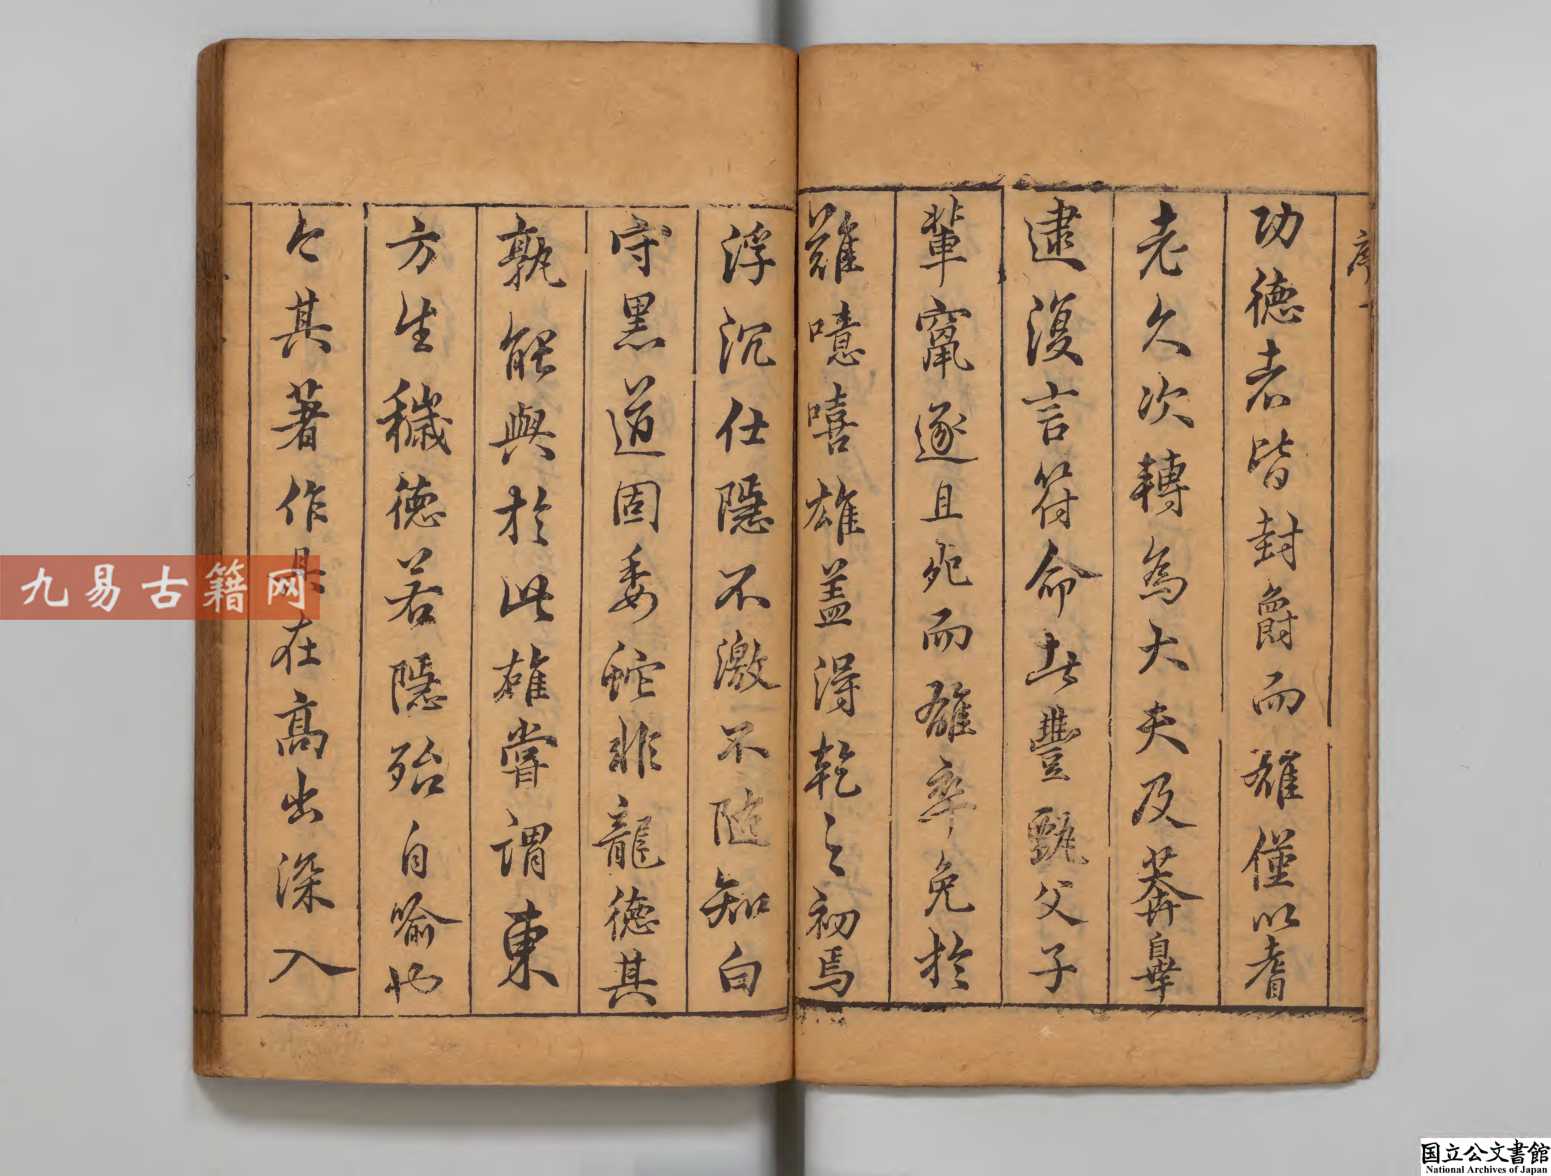 序
功德者皆封爵而雄僅以耆
老久次轉為大夫及莽辠
逮復言符命此豐甄父子
輩竄逐且死而雄卒免於
難噫嘻雄蓋得乾之初焉
浮沉仕隱不激不隨知白
守黑道固委蛇非龍德其
孰能與於此雄嘗謂東
方生穢德若隱殆自喻也
今其著作具在高出深入
九易古籍网
国立公文書館
National Archives of Japan